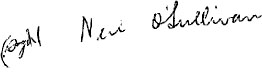 (Sgd) Neil O'Sullivan